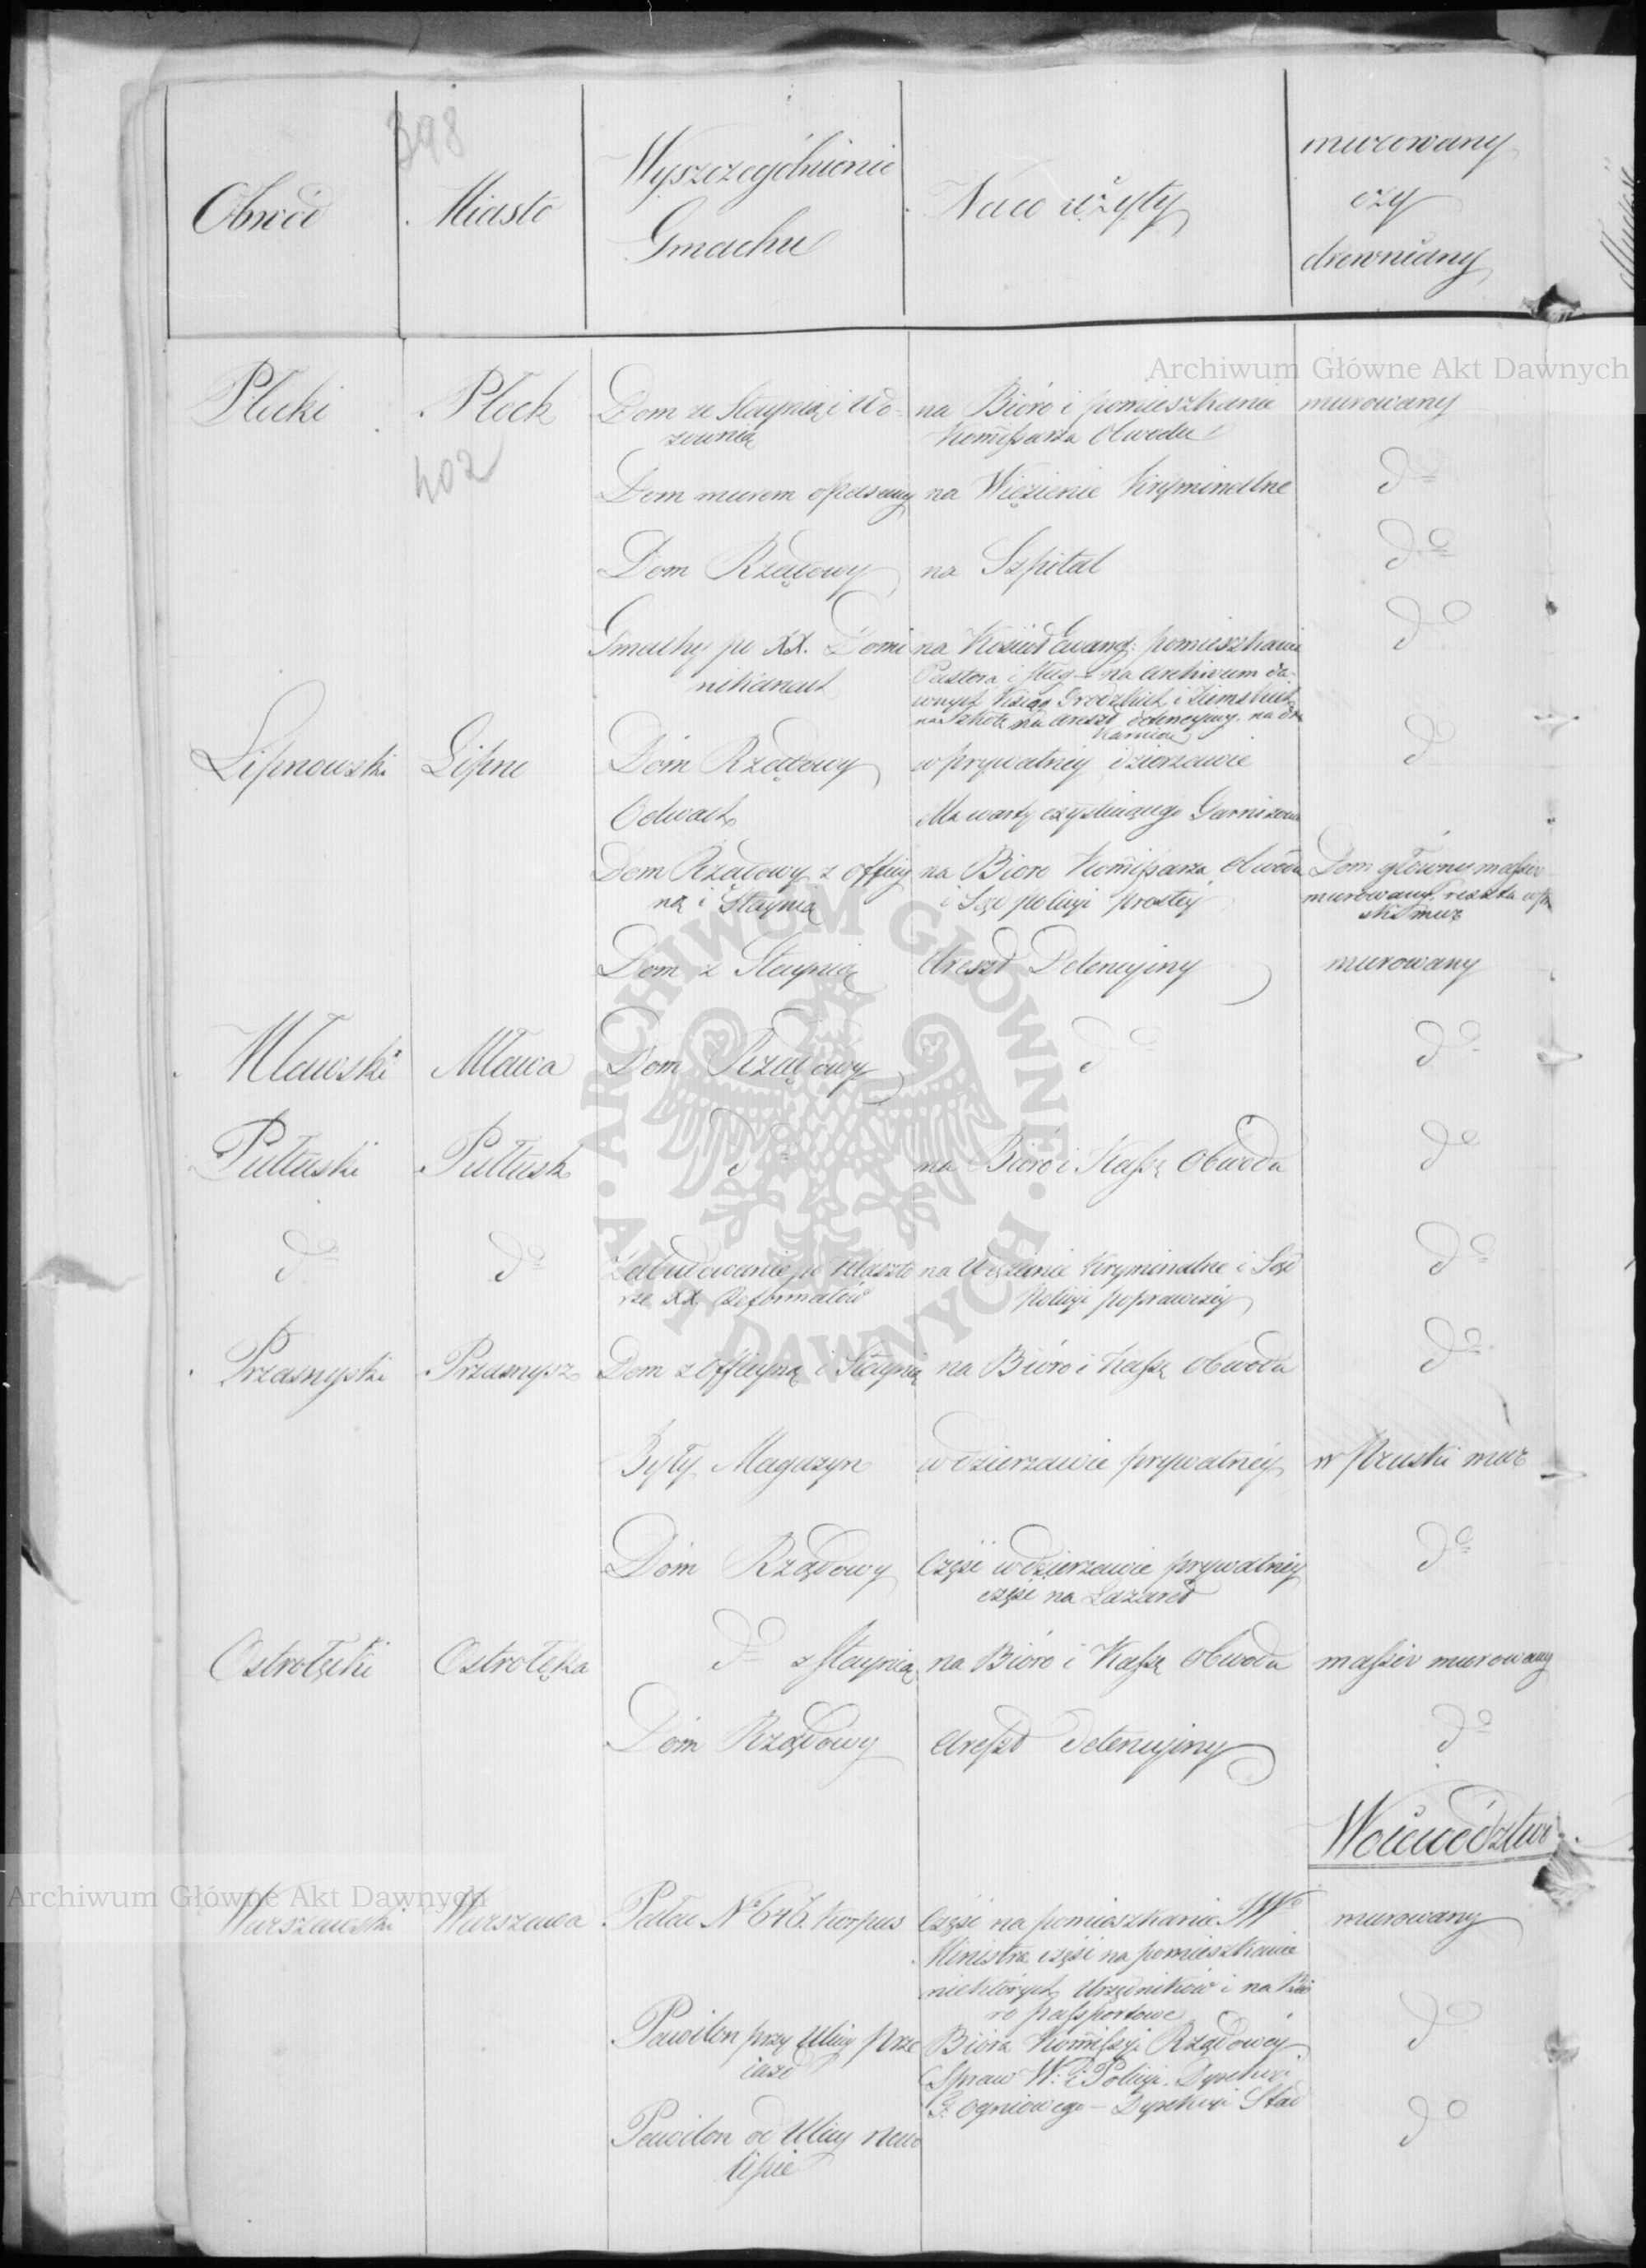 398
Obwód
Miasto
Wyszczególnienie
Gmachu
Na co użyty
murowany
czy
drewniany
Archiwum Główne Akt Dawnych
Płocki
Płock
Dom ze Staynią i wo-
zownią
na Bióro i pomieszkanie
Kommissarza Obwodu
murowany
402
Dom murem opasany
na Więzienie Kryminalne
do
Dom Rządowy
na Szpital
do
Gmachy po XX. Domi
nikanach
na Kościół Ewang: pomieszkanie
Pastora i sług – na Archivum da-
wnych Ksiąg Grodzkich i Ziemskich
na Szkołę na areszt detencyjny, na dru
karnię
do
Lipnowski
Lipno
Dóm Rządowy
w prywatney dzierzawie
do
Odwach
dla warty czyniącego Garnizonu
Dom Rządowy z officy
ną i Staynią
na Bioro Kommissarza Obwodu
i Sąd policyi prostey
Dom główny massiv
murowany, reszta w pr
uski mur
Dom z Staynią
Areszt Detencyiny
murowany
Mławski
Mława
Dom Rządowy
do
do
Pułtuski
Pułtusk
do
na Bióro i Kassę Obwodu
do
do
do
Zabudowanie po Klaszto
rze XX. Reformatów
na Więzienie Kryminalne i Sąd
Policyi poprawczéy
do
Przasnyski
Przasnysz
Dom z officyną i Staynią
na Bióro i Kassę Obwodu
do
Były Magazyn
w dzierzawie prywatnéy
w Pruski mur
Dóm Rządowy
Część w dzierzawie prywatnéy
część na Lazaret
do
Ostrołęcki
Ostrołęka
do z staynią
na Bióro i Kassę Obwodu
massiv murowany
Dóm Rządowy
Areszt detencyiny
do
Województwo
Archiwum Główne Akt Dawnych
Warszawski
Warszawa
Pałac No 646. Korpus
Część na pomieszkanie JW
Ministra, część na pomieszkanie
niektórych Urzędników i na Bió
ro passportowe
murowany
Pawilon przy Ulicy Prze
iazd
Bióra Kommissyi Rządowéy
Spraw W. i Policyi. Dyrekcyi
T. Ogniowego – Dyrekcyi Stad
do
Pawilon od Ulicy Nowo
lipie
do
ARCHIWUM GŁÓWNE · AKT DAWNYCH ·